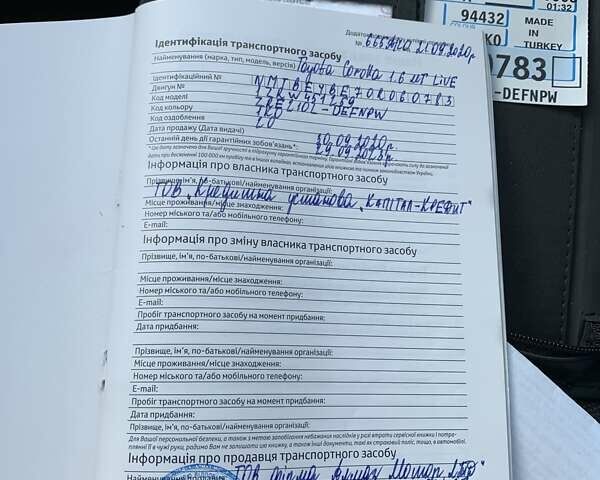 01:32
94432
MADE IN TURKEY
783
-DEFNPW
Ідентифікація транспортного засобу
№ 21.09.2020р
Найменування (марка, тип, модель, версія) Toyota Corolla 1.6 MT LiVE
Ідентифікаційний № NMTBEYBE70R060783
Двигун №
Код моделі ZRE210L-DEFNPW
Код кольору
Код оздоблення 20
Дата продажу (Дата видачі) 30.09.2020р
Останній день дії гарантійних зобов'язань*: 29.09.2023р.
Інформація про власника транспортного засобу
Прізвище, ім'я, по-батькові/найменування організації:
ТОВ „Кредитна установа „КАПІТАЛ-КРЕДИТ"
Місце проживання/місце знаходження:
Номер міського та/або мобільного телефону:
E-mail:
Інформація про зміну власника транспортного засобу
Прізвище, ім'я, по-батькові/найменування організації:
Місце проживання/місце знаходження:
Номер міського та/або мобільного телефону:
E-mail:
Пробіг транспортного засобу на момент придбання:
Дата придбання:
Прізвище, ім'я, по-батькові/найменування організації:
Місце проживання/місце знаходження:
Номер міського та/або мобільного телефону:
E-mail:
Пробіг транспортного засобу на момент придбання:
Дата придбання:
Прізвище, ім'я, по-батькові/найменування організації:
Для Вашої персональної безпеки, а також з метою запобігання небажаних наслідків у разі втрати сервісної книжки і потрап-
ляння її в чужі руки, радимо Вам не залишати цю книжку, а також інші документи, такі як страховий поліс, тощо, в автомобілі.
Інформація про продавця транспортного засобу
Найменування ТОВ фірма Мотор